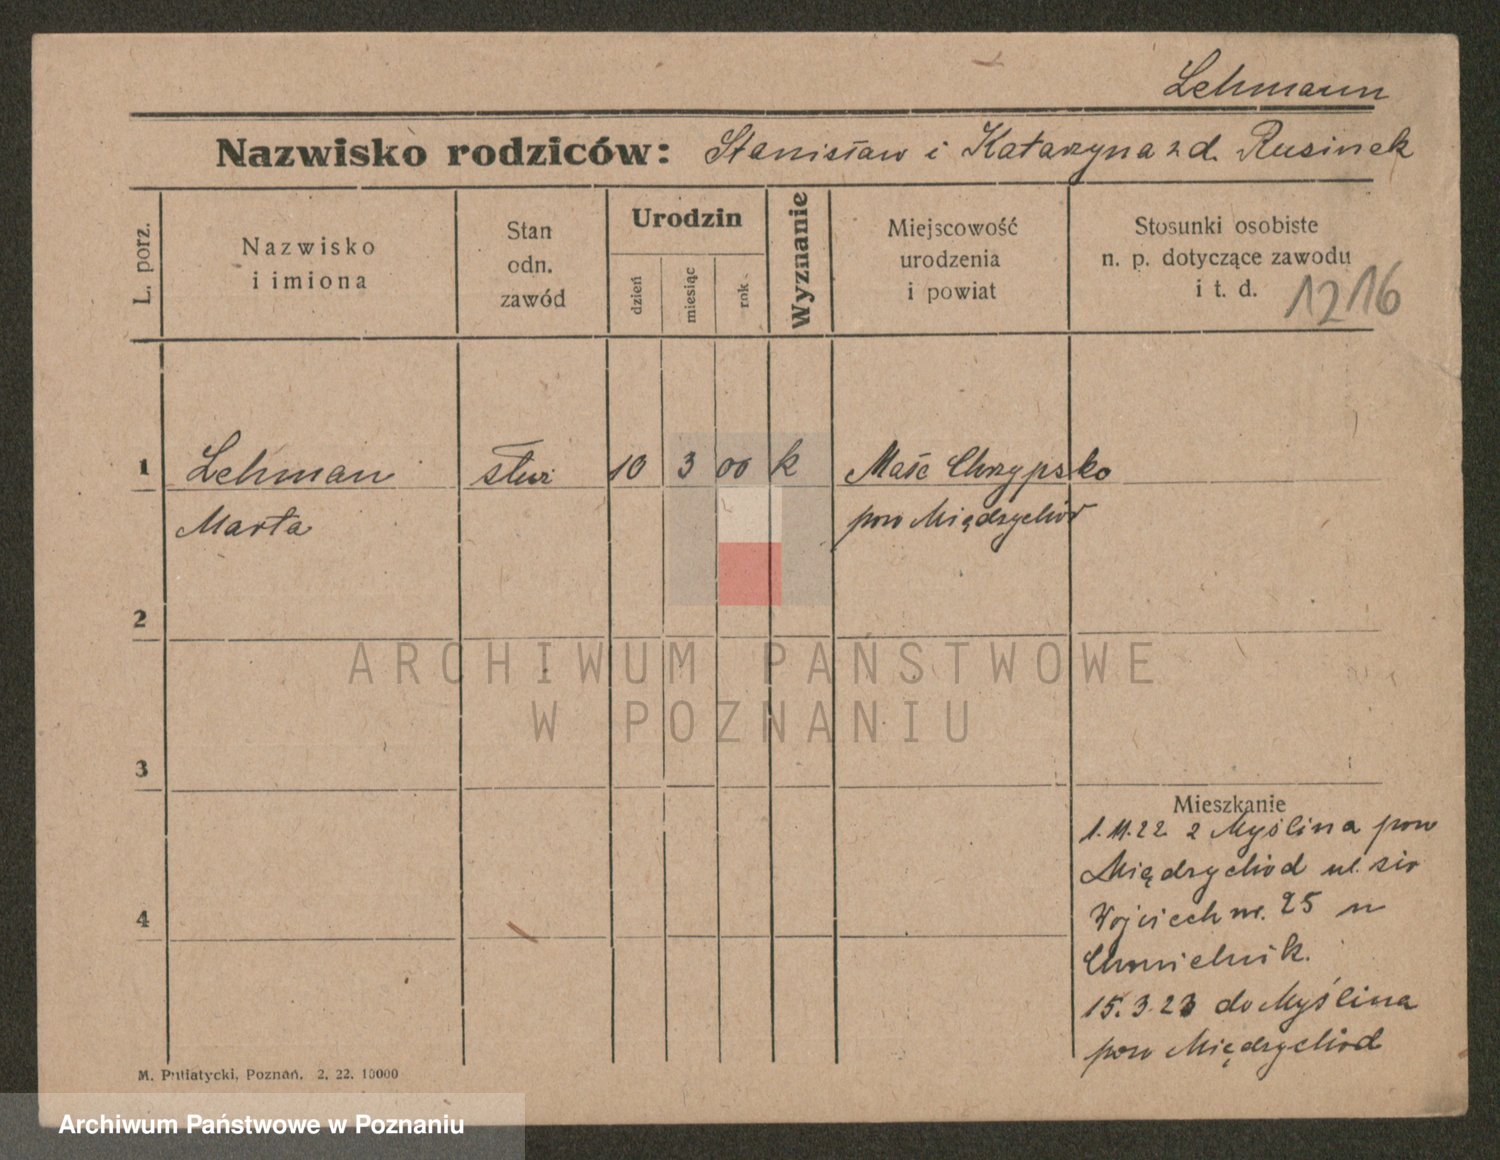 Lehmann
Nazwisko rodziców: Stanisław i Katarzyna z d. Rusinek
L. porz.
Nazwisko
i imiona
Stan
odn.
zawód
Urodzin
dzień
miesiąc
rok
Wyznanie
Miejscowość
urodzenia
i powiat
Stosunki osobiste
n. p. dotyczące zawodu
i t. d.
1216
1 Lehman służ 10 3 00 k Małe Chrzypsko
Marta pow Międzychód
2
3
4
Mieszkanie
1.11.22 z Myślina pow
Międzychód ul. św
Wojciech nr. 25 u
Chmielnik.
15.3.23 do Myślina
pow Międzychód
M. Putiatycki, Poznań, 2. 22. 10000
ARCHIWUM PAŃSTWOWE
W POZNANIU
Archiwum Państwowe w Poznaniu